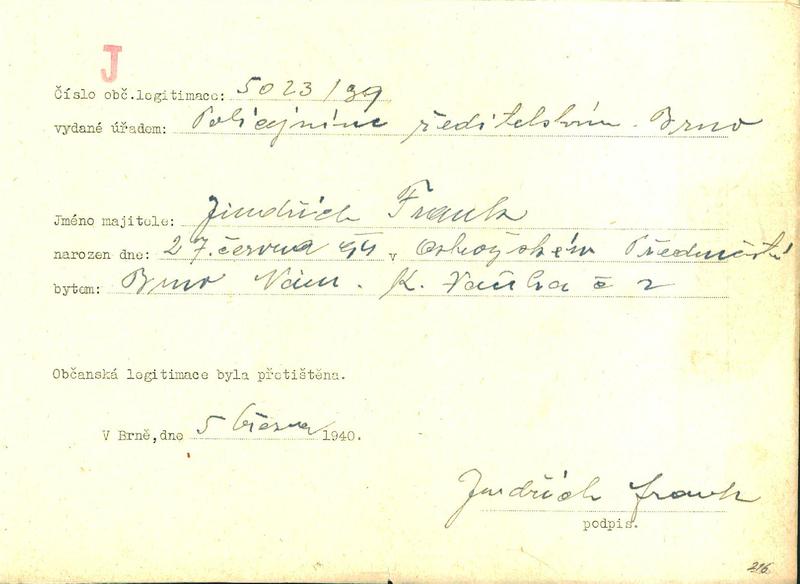 J
Číslo obč.legitimace: 5023/39
vydané úřadem: Policejním ředitelstvím. Brno
Jméno majitele: Jindřich Frank
narozen dne: 27. června v Předměstí
bytem: Brno Nám. K. č 2
Občanská legitimace byla přetištěna.
V Brně, dne 5 března 1940.
Jindřich Frank
podpis.
216